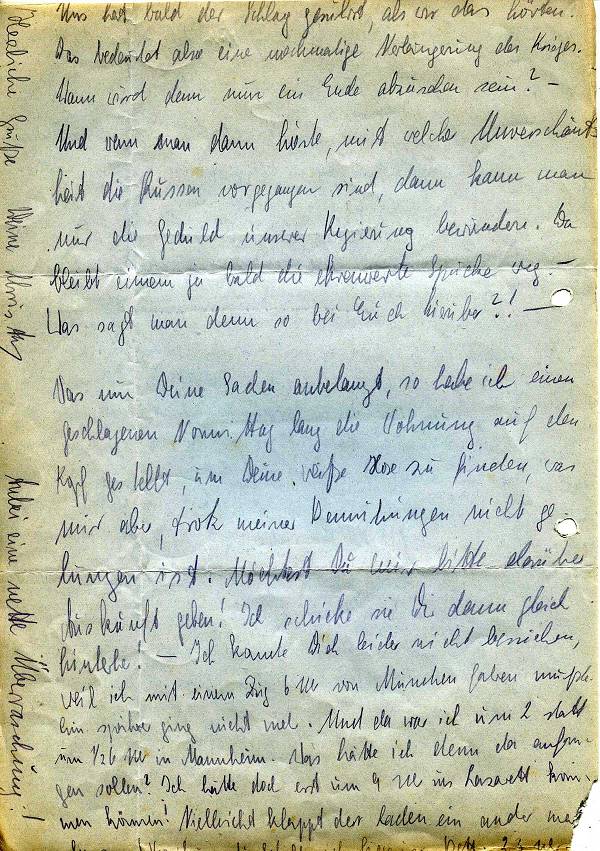 Uns hat bald der Schlag gerührt, als wir das hörten.
Das bedeutet also eine nochmalige Verlängerung des Krieges.
Wann wird denn nur ein Ende abzusehen sein? –
Und wenn man dann hörte, mit welcher Unverschämt-
heit die Russen vorgegangen sind, dann kann man
nur die Geduld unserer Regierung bewundern. Da
bleibt einem ja bald die ehrenwerte Spucke weg. –
Was sagt man denn so bei Euch hierüber?! –
Was nun Deine Sachen anbelangt, so habe ich einen
geschlagenen Vormittag lang die Wohnung auf den
Kopf gestellt, um Deine weiße Hose zu finden, was
mir aber, trotz meiner Bemühungen nicht ge-
lungen ist. Möchtest Du mir bitte darüber
Auskunft geben! Ich schicke sie Dir dann gleich
hinterher! – Ich konnte Dich leider nicht besuchen,
weil ich mit einem Zug 6 Uhr von München fahren mußte.
Ein späterer ging nicht mehr. Und da war ich um 2 statt
um 1/2 6 Uhr in Mannheim. Was hätte ich denn da anfan-
gen sollen? Ich hätte doch erst um 9 Uhr ins Lazarett kom-
men können! Vielleicht klappt der Laden ein ander mal
Herzliche Grüße Deine
Anbei eine nette Überraschung!